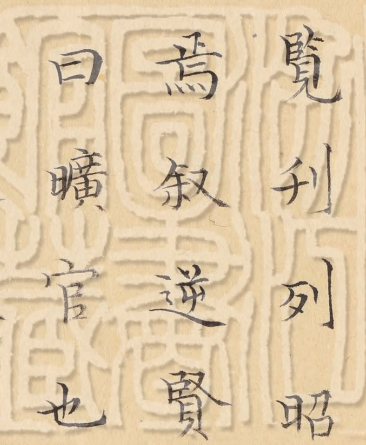 覧刋列昭
焉叙逆賢
曰曠官也